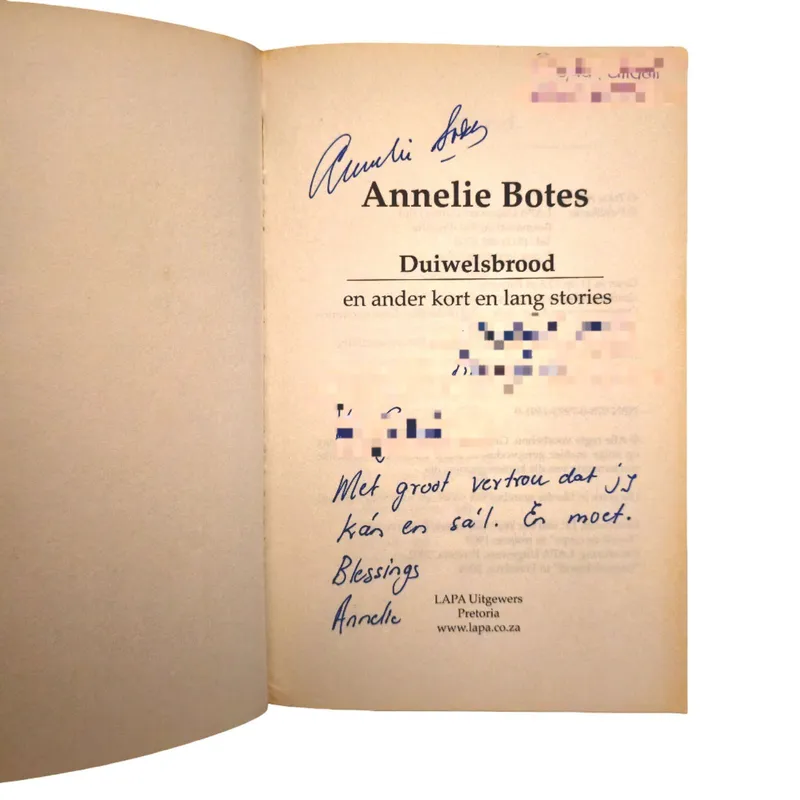 Annelie Botes
Annelie Botes
Duiwelsbrood
en ander kort en lang stories
Met groot vertrou dat jy
kán en sá'l. En moet.
Blessings
Annelie
LAPA Uitgewers
Pretoria
www.lapa.co.za